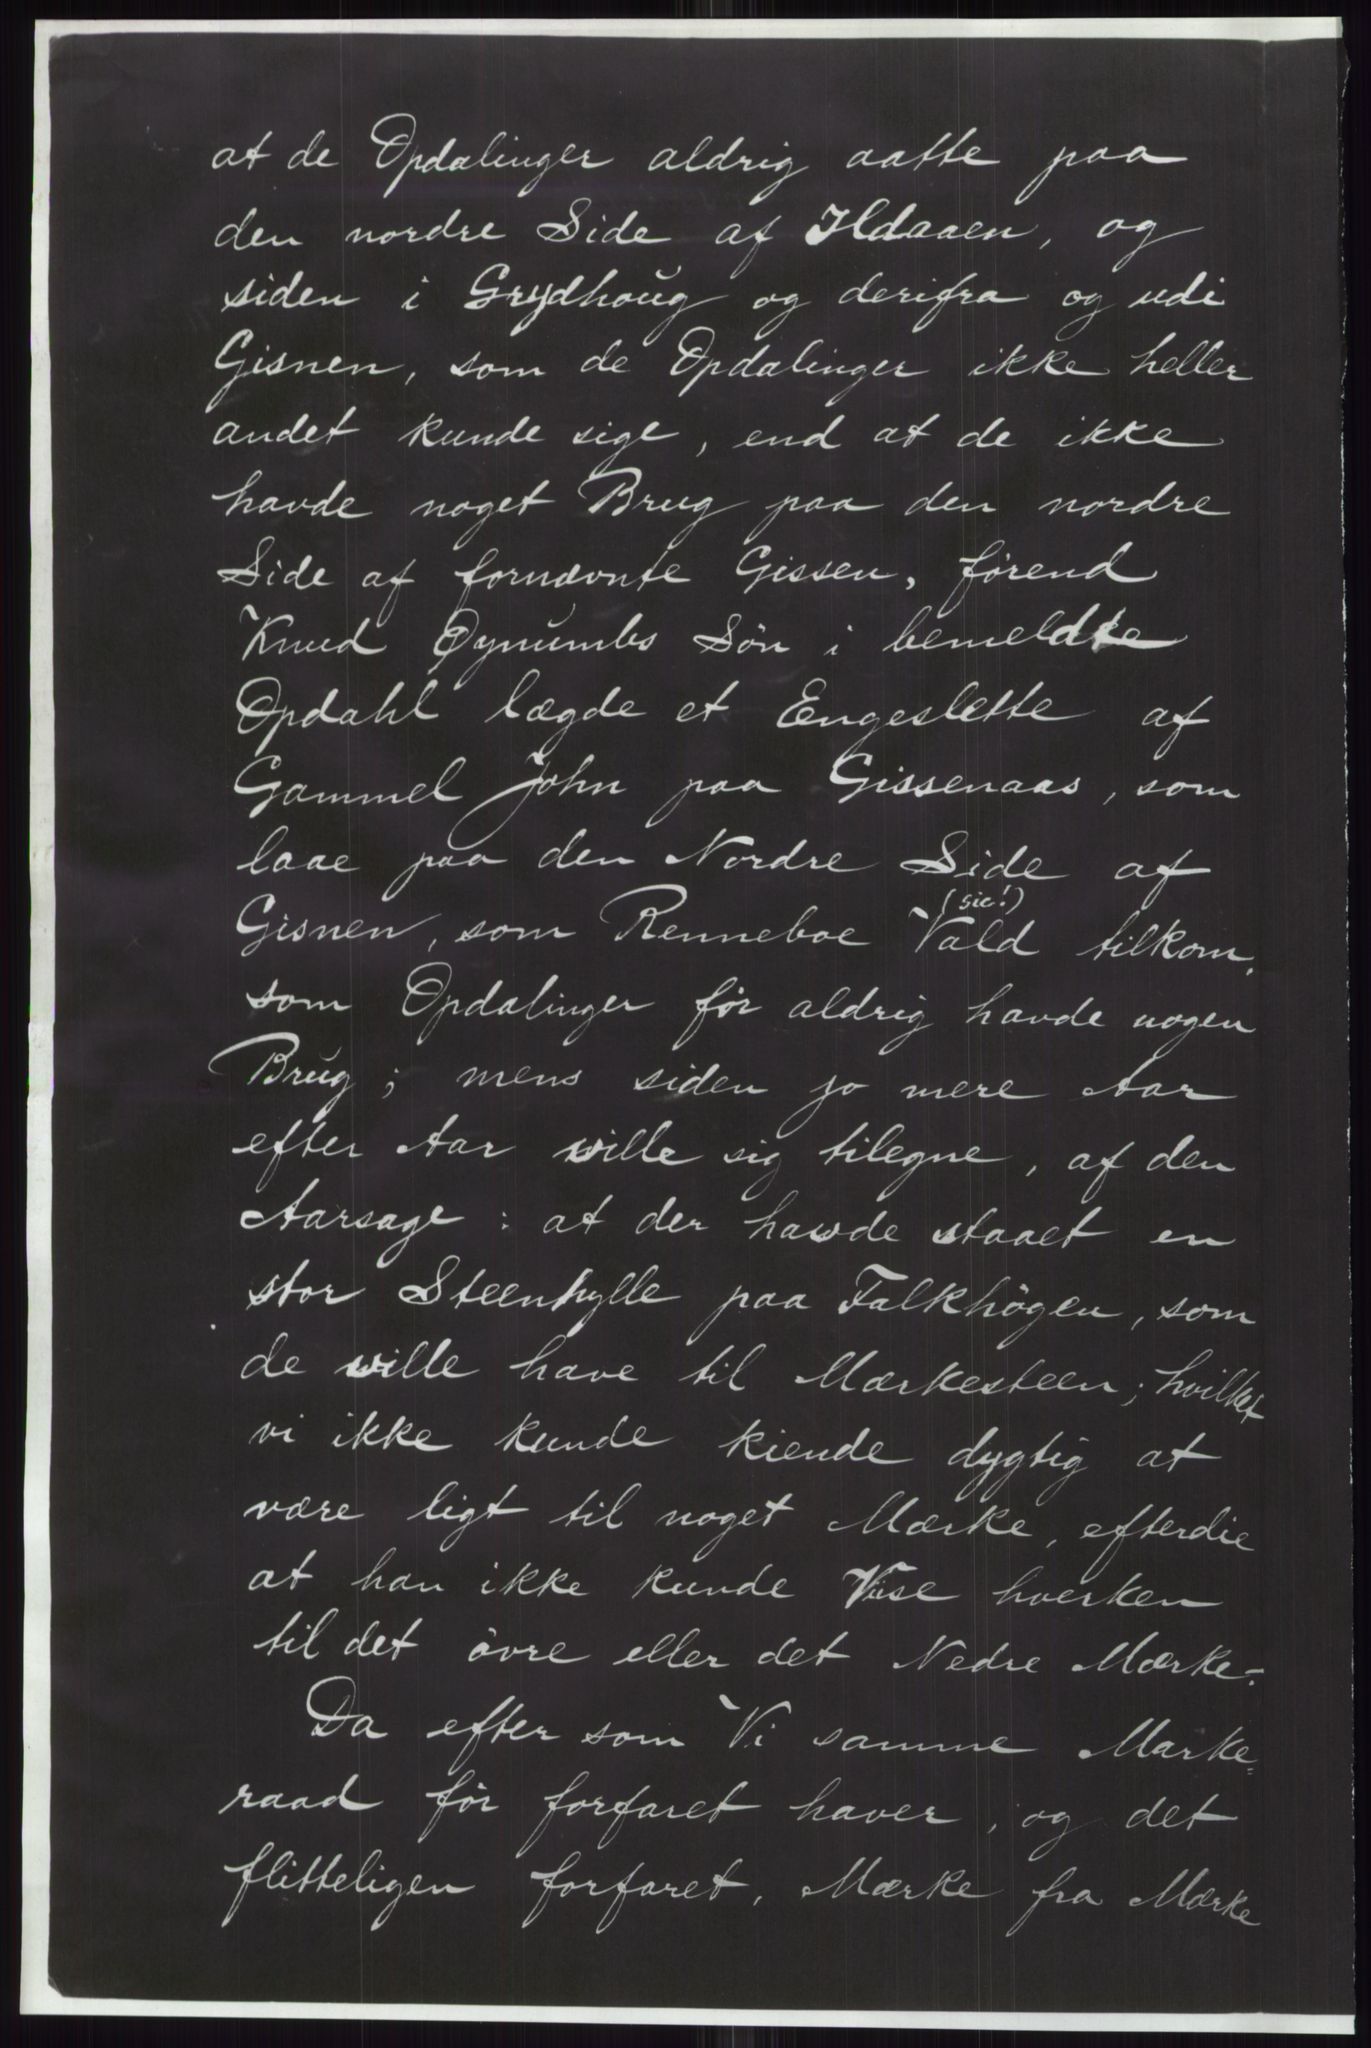 at de Opdalinger aldrig aatte paa
den nordre Side af Ildaaen, og
siden i Grydhoug og derifra og udi
Gisnen, som de Opdalinger ikke heller
andet kunde sige, end at de ikke
havde noget Brug paa den nordre
Side af fornævnte Gissen, førend
Knud Øynumbs Søn i bemeldte
Opdahl lægde et Engeslette af
Gammel John paa Gissenaas, som
laae paa den Nordre Side af
(sic!)
Gisnen, som Renneboe Vald tilkom,
som Opdalinger før aldrig havde nogen
Brug; mens siden jo mere Aar
efter Aar wille sig tilegne, af den
Aarsage: at der hawde staaet en
stor Steenhylle paa Falkhögen, som
de wille have til Mærkesteen; hvilket
vi ikke kunde kiende dygtig at
være ligt til noget Mærke, efterdie
at han ikke kunde Viise hverken
til det övre eller det Nedre Mærke.-
Da efter som Vi samme Marke-
raad før forfaret haver, og det
flitteligen forfaret, Mærke fra Mærke